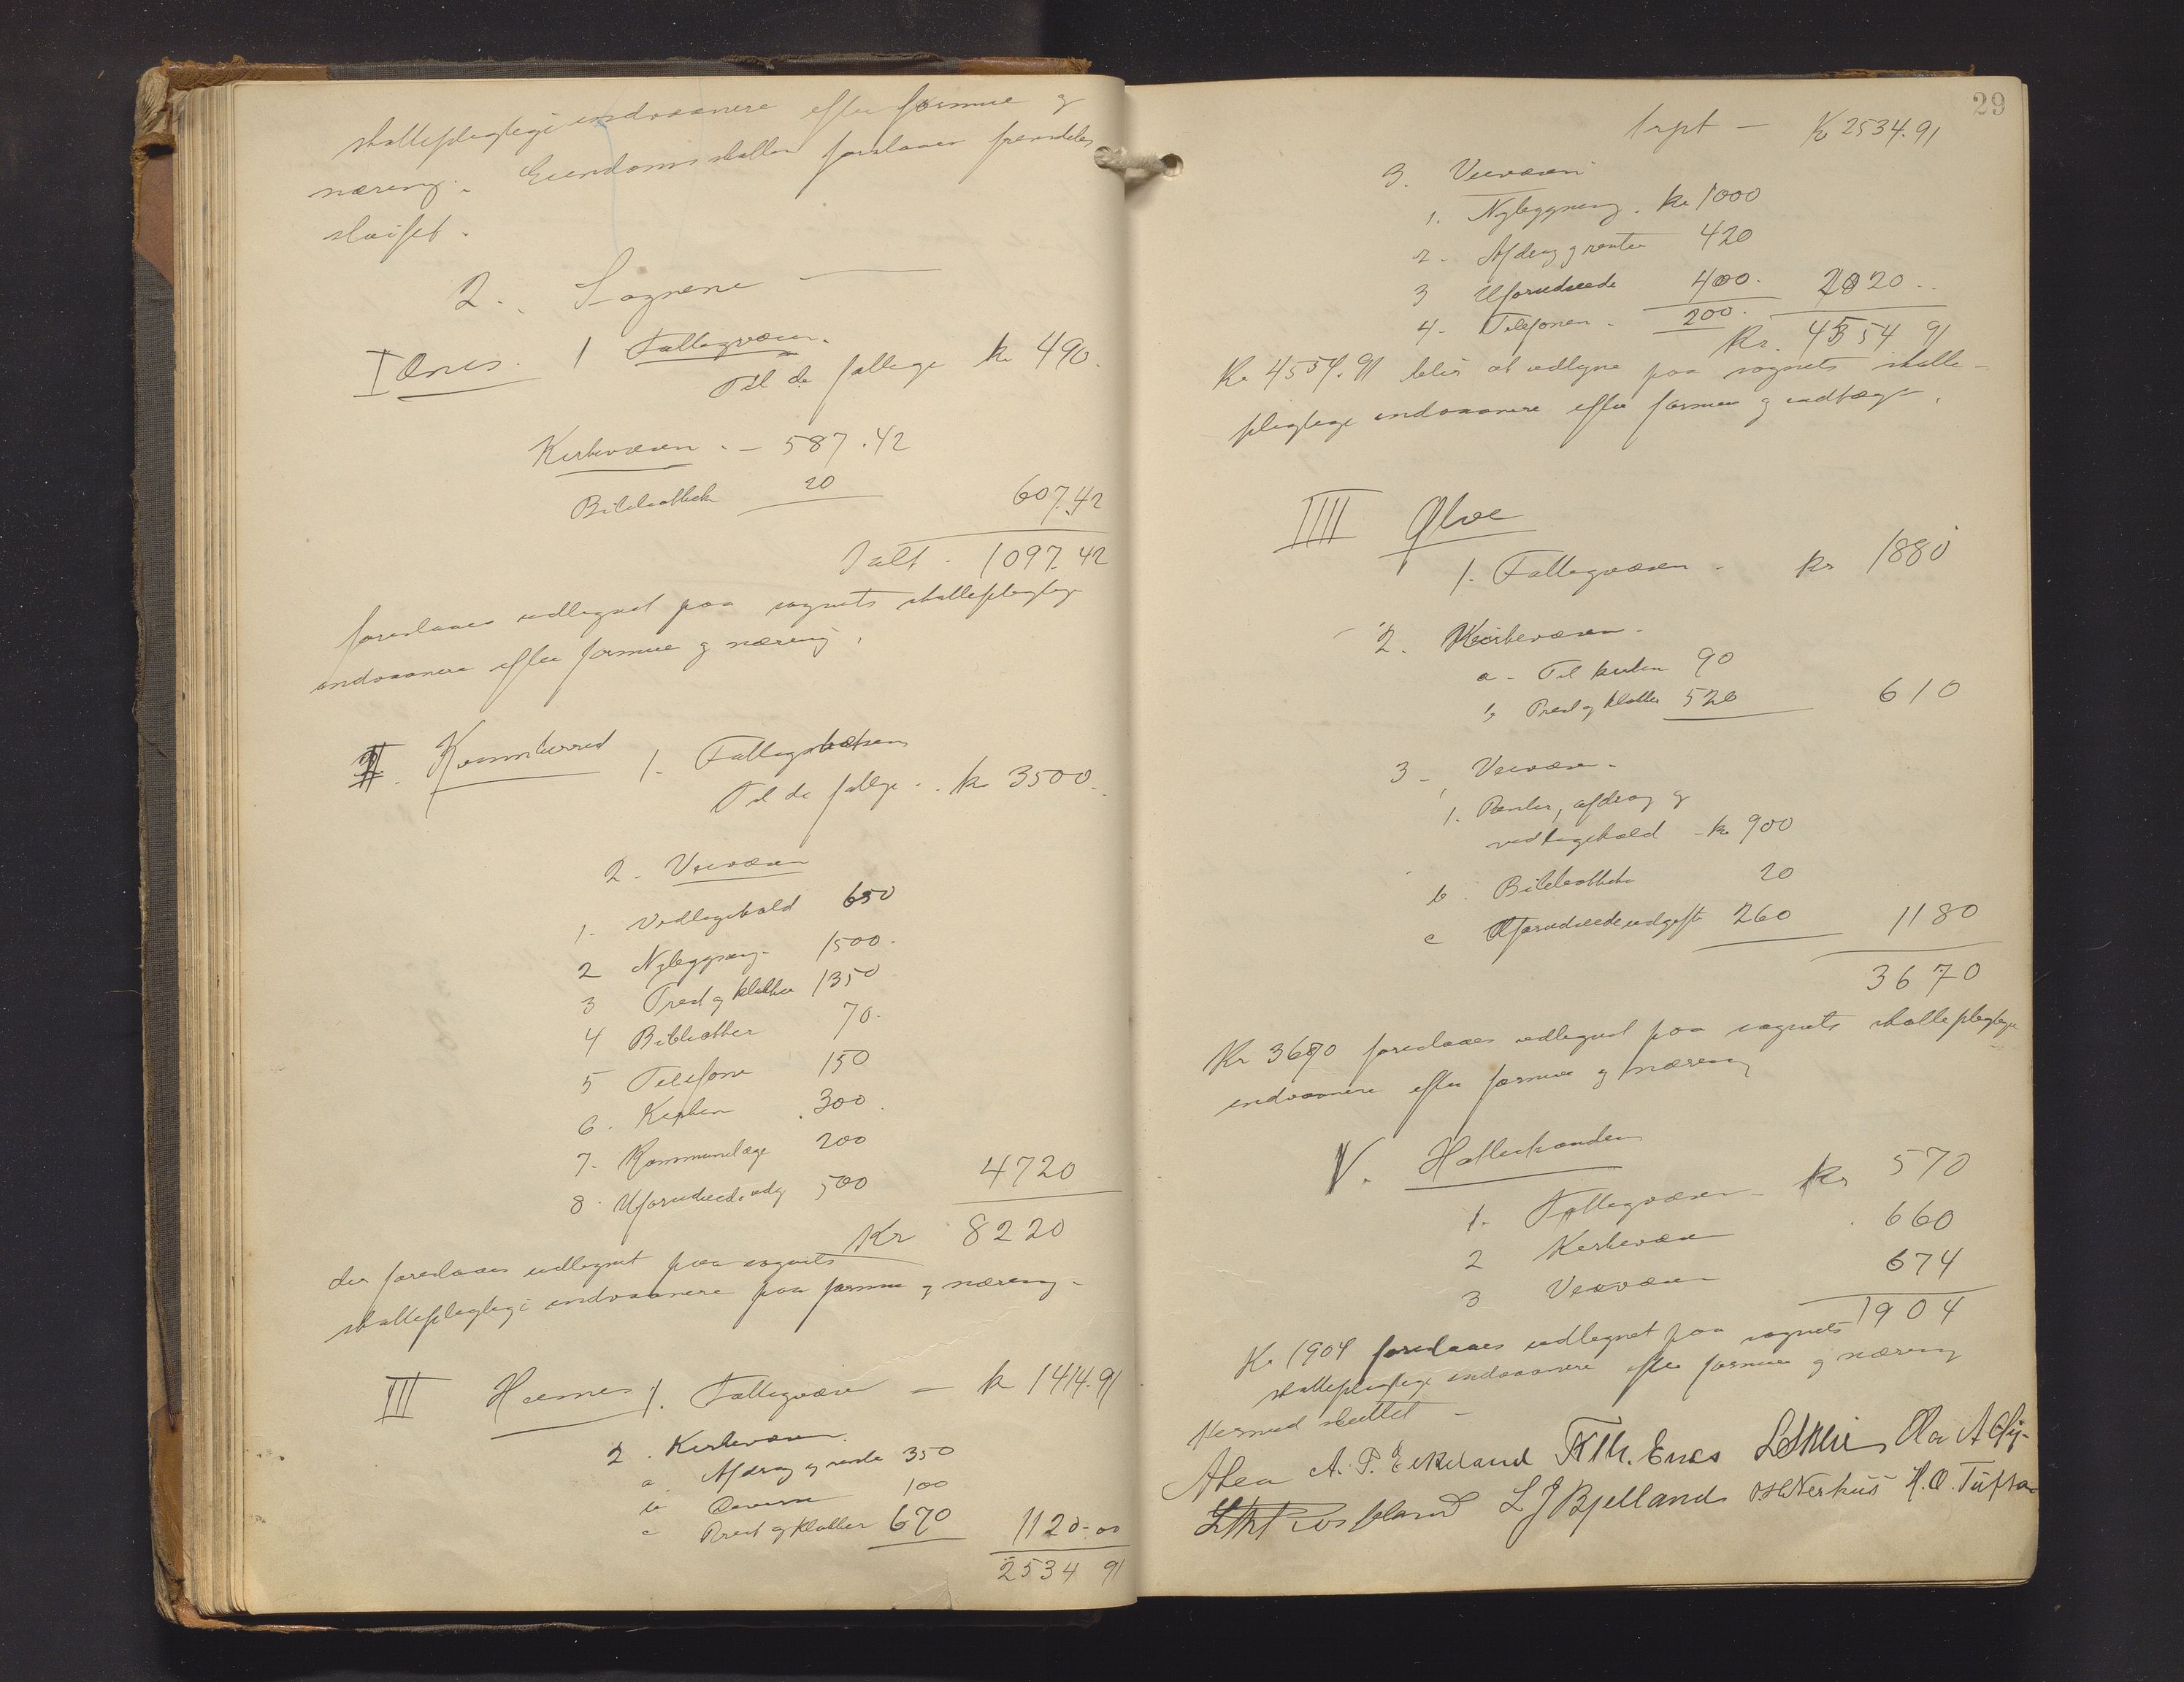 skattepligtige indvaanere efter formue og
næring. Eiendomsskatten foreslaaes fremdeles
sløifet.
2. Sognene
I Ænes. 1 Fattigvæsen.
Til de fattige kr 490.
Kirkevæsen. - 587.42
Bibliothek 20 607.42
Ialt. 1097.42
foreslaaes udlignet paa sognets skattepligtige
indvaanere efter formue og næring.
II. Kvinnherred 1. Fattigvæsen
Til de fattige. kr 3500.
2. Veivæsen
1. Vedligehold 650
2 Nylægning 1500.
3 Prest og klokker 1350
4 Bibliother 70.
5 Telefon 150
6. Kirken 300
7. Kommunelæge 200
8. Uforudseede udg 500 4720
Kr 8220
der foreslaaes udlignet paa sognets
skattepligtige indvaanere paa formue og næring.
III Husnes 1. Fattigvæsen - kr 1414.91
2. Kirkevæsen.
a. Afdrag og rente 350
b. Diverse 100
c Prest og klokker 670 1120-00
2534 91
29
Trpt - Kr 2534.91
3. Veivæsen
1. Nylægning. kr 1000
2. Afdrag og renter 420
3 Uforudseede 400. 2020..
4. Telefoner. 200.
Kr. 4554 91
Kr 4554.91 blir at udligne paa sognets skatte-
pligtige indvaanere efter formue og indtægt.
IIII Ølve
1. Fattigvæsen - kr 1880
2. Kirkevæsen.
a. Til kirken 90
b Prest og klokker 520 610
3. Veivæsen.
1. Renter, afdrag og
vedligehold - kr 900
b. Bibliothek 20
c Uforudseede udgifte 260 1180
3670
Kr 3670 foreslaaes udlignet paa sognets skattepligtige
indvaanere efter formue og næring
V. Hatlestranden
1. Fattigvæsen - kr 570
2 Kirkevæsen 660
3 Veivæsen 674
1904
Kr 1904 foreslaaes udlignet paa sognets
skattepligtige indvaanere efter formue og næring
Hermed sluttet -
A. T. Eikeland Fr Th. Enes Ola A
L J Bjelland O. H. Nerhus H. O. Tufta